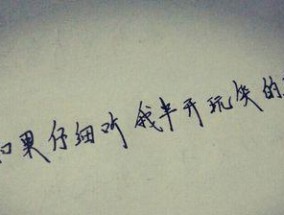 如果仔细听我半开玩笑的